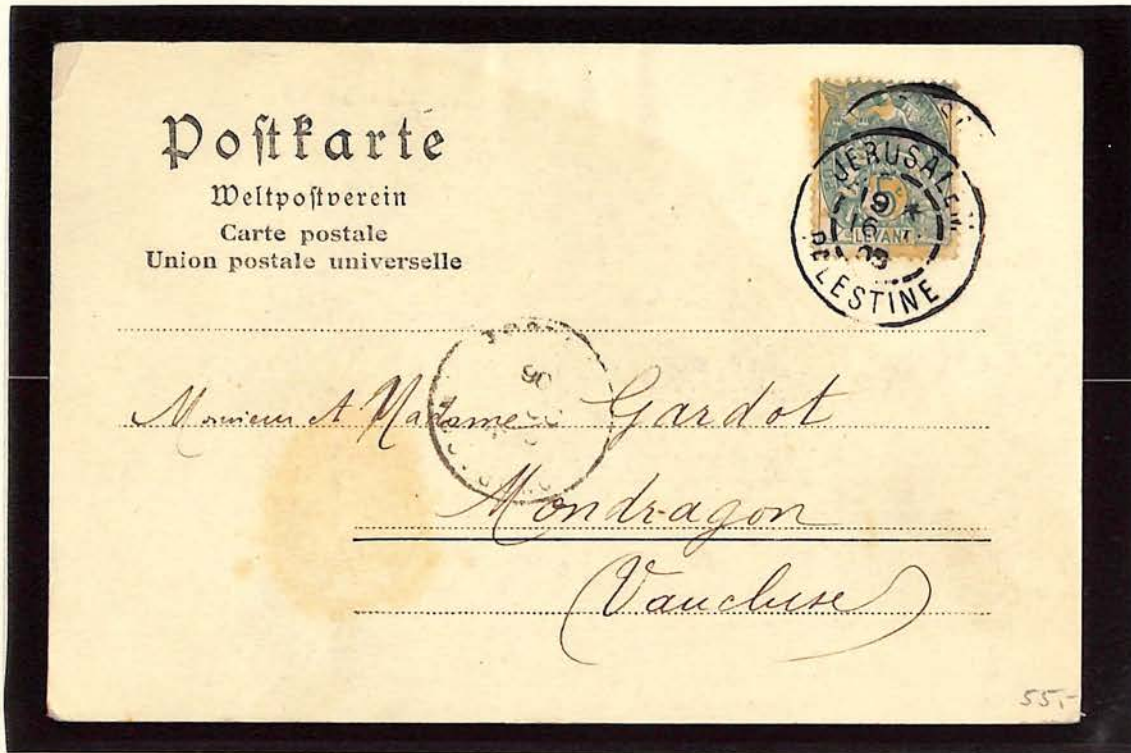 Poſtkarte
Weltpoſtverein
Carte postale
Union postale universelle
5
LEVANT
JERUSALEM
19 *
6
PALESTINE
Monsieur et Madame Gardot
06
Mondragon
(Vaucluse)
55,-